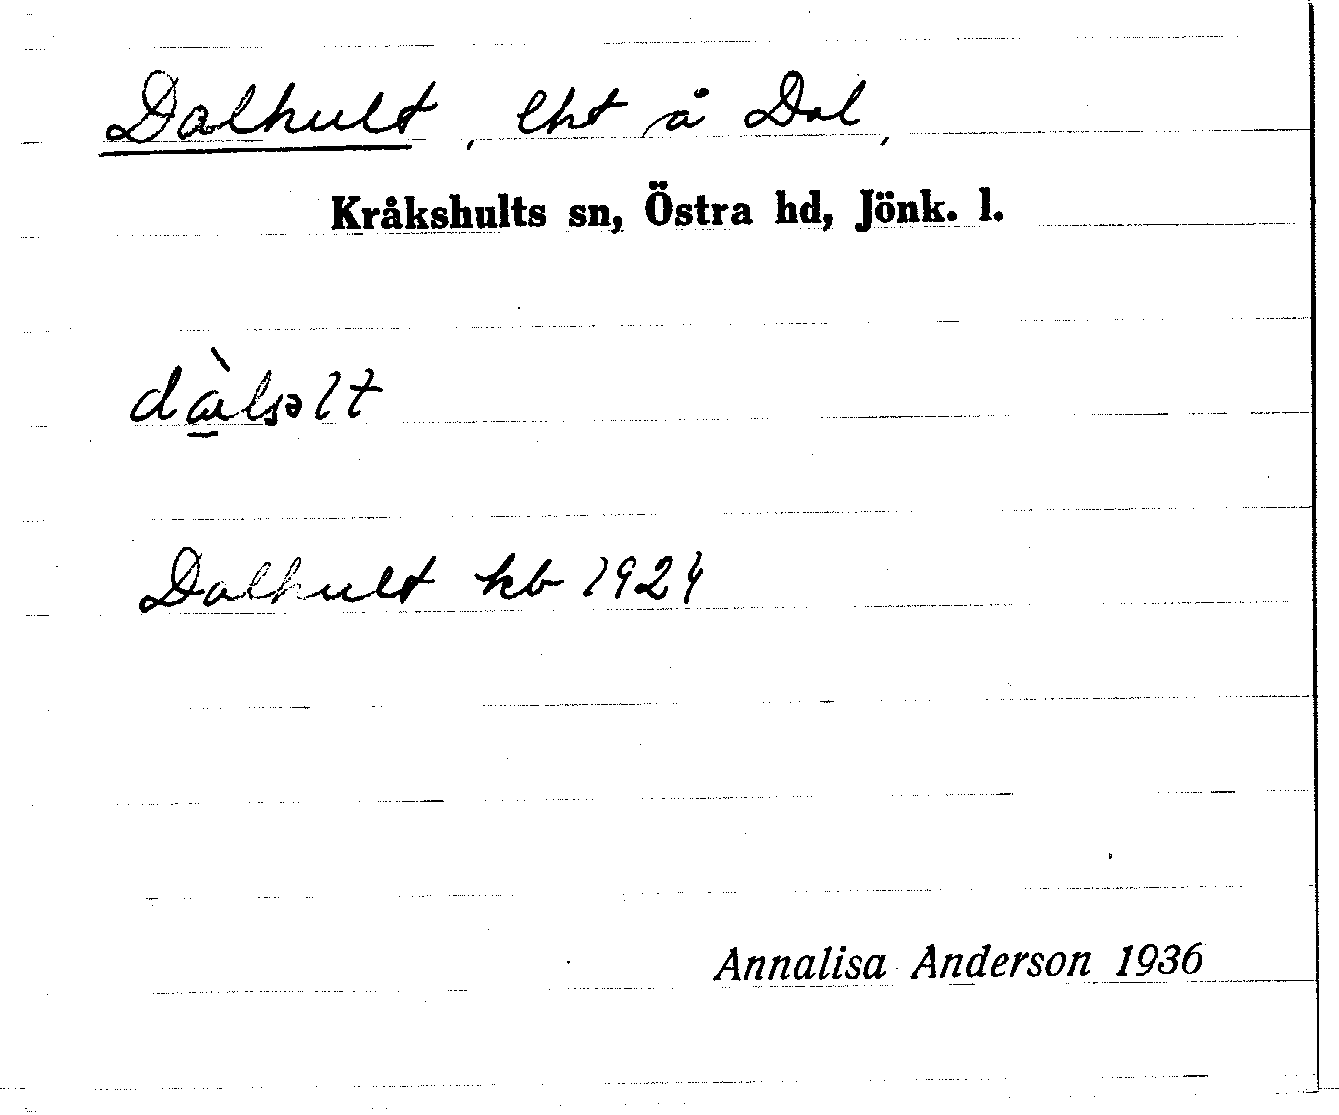 Dalhult, lht å Dal,
Kråkshults sn, Östra hd, Jönk. l.
Dalhult kb 1924
Annalisa Anderson 1936